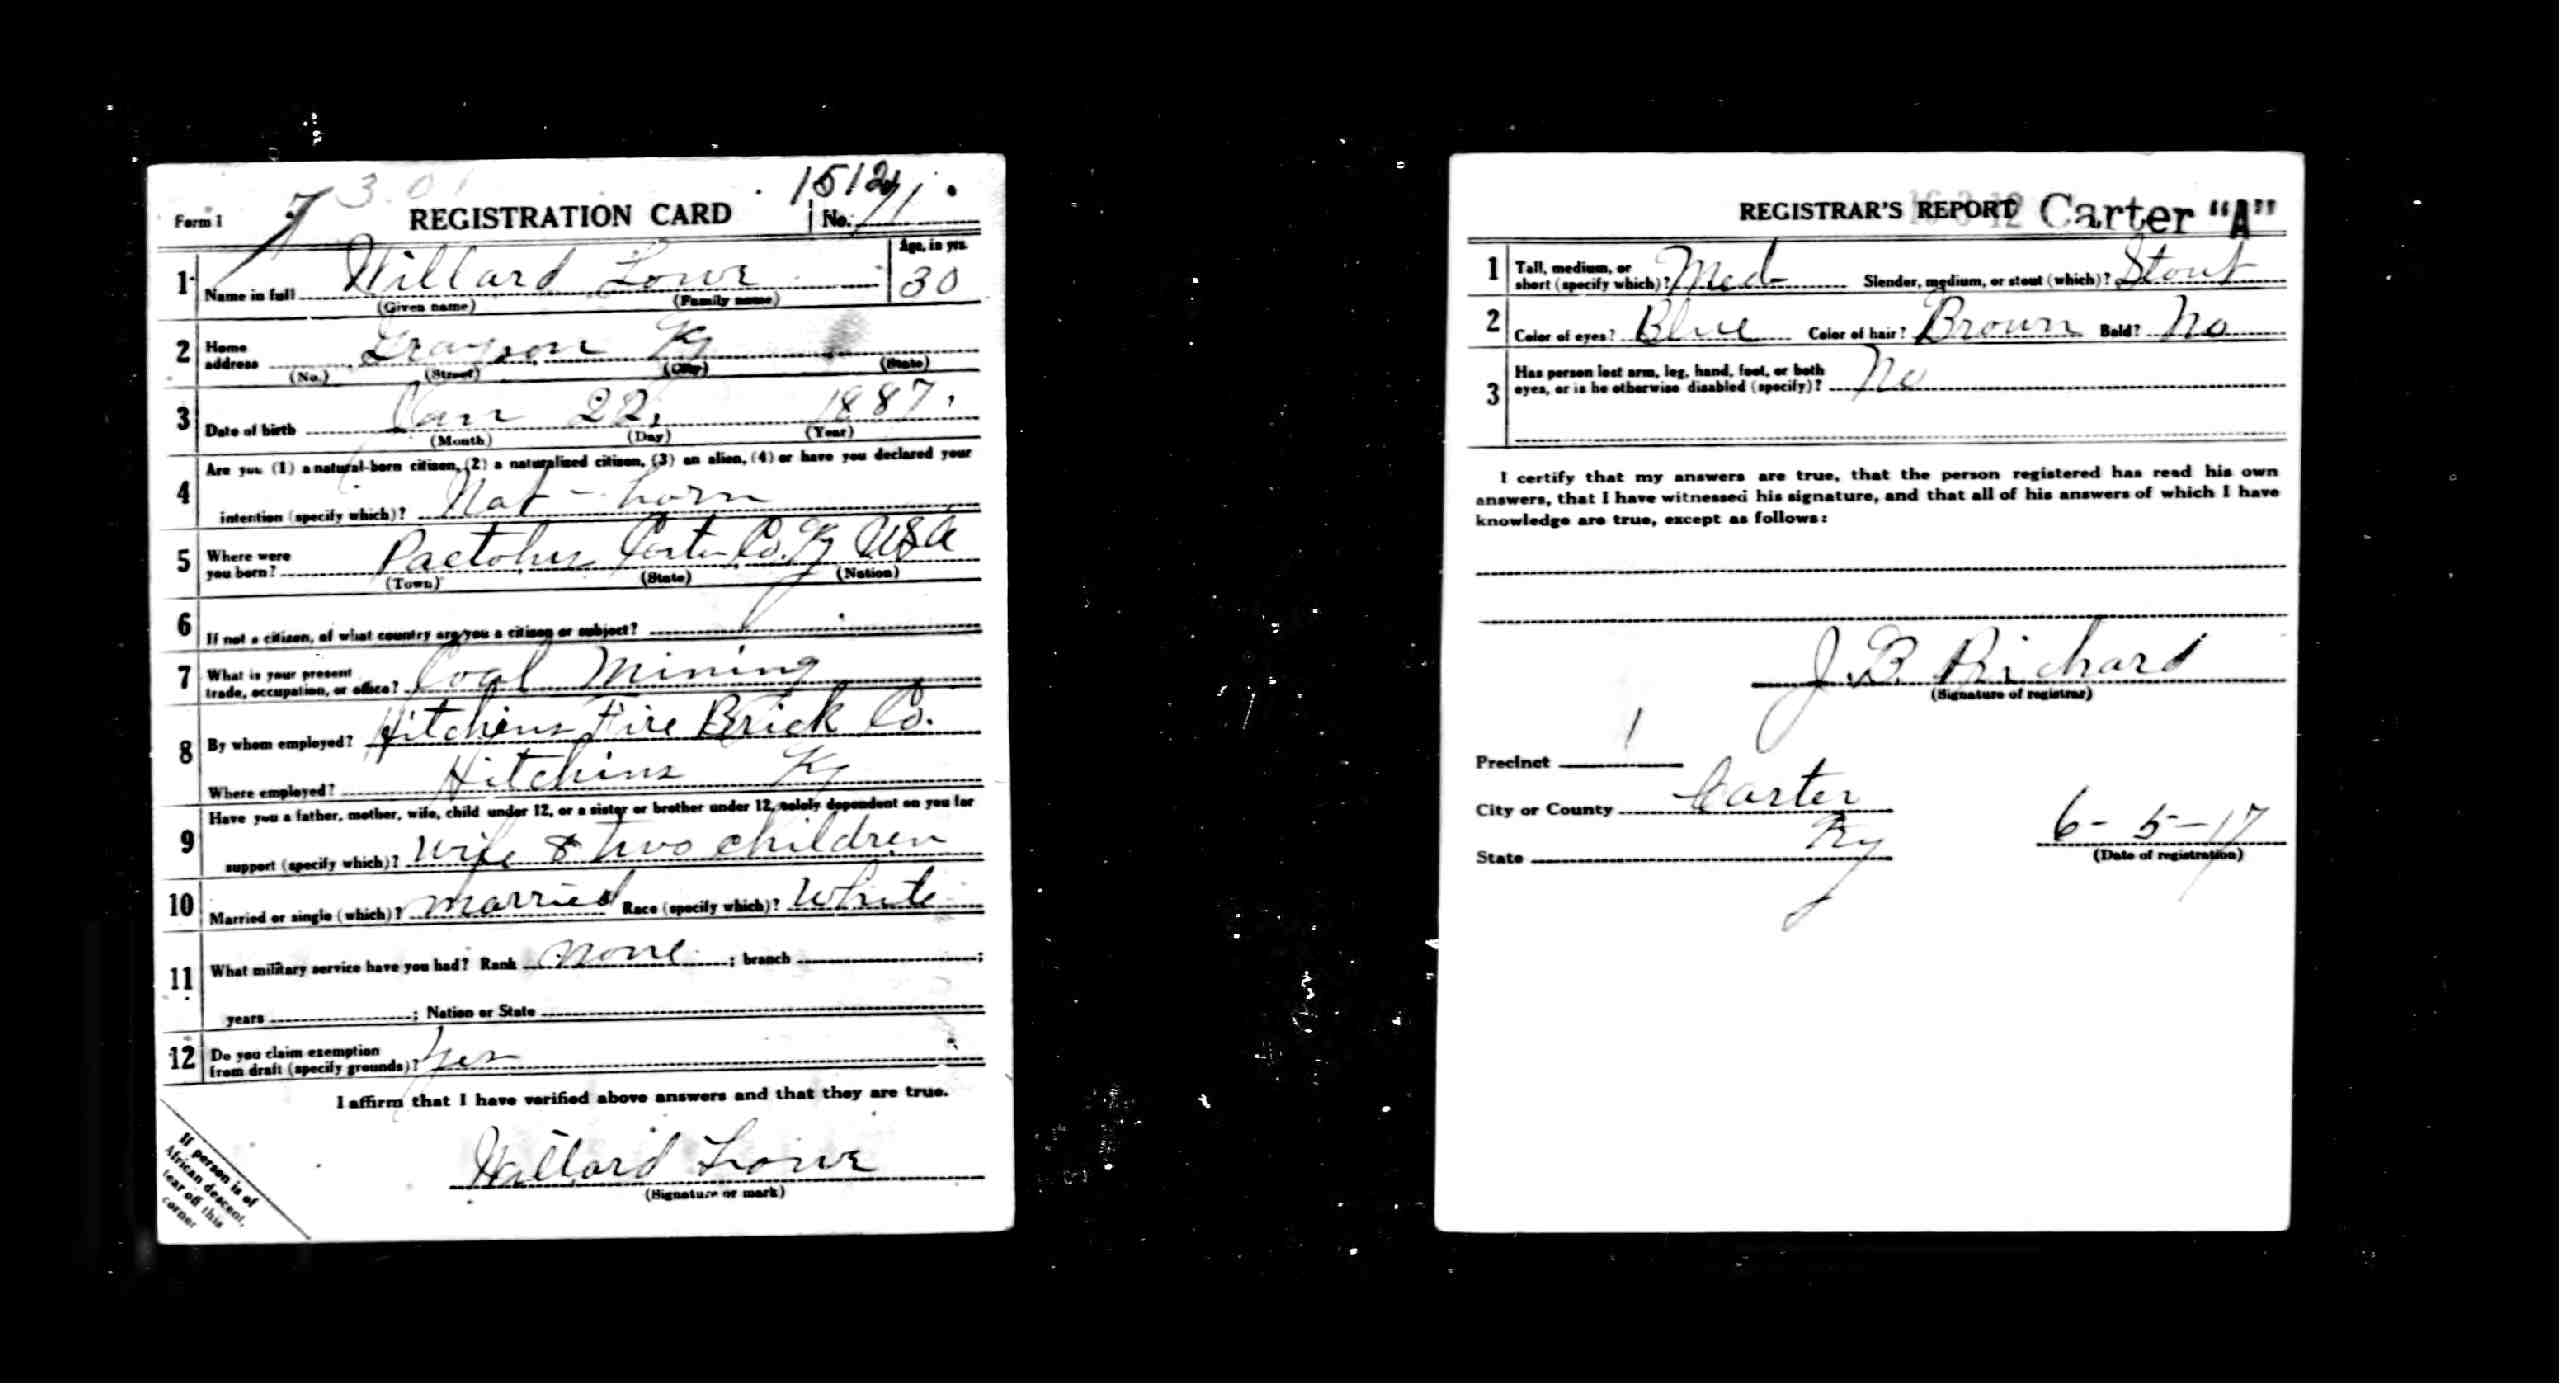 Form 1 REGISTRATION CARD No. 71
1 Name in full Willard Lowe Age, in yrs. 30
(Given name) (Family name)
2 Home address Grayson Ky
(No.) (Street) (City) (State)
3 Date of birth Jan 22, 1887
(Month) (Day) (Year)
4 Are you (1) a natural-born citizen, (2) a naturalized citizen, (3) an alien, (4) or have you declared your
intention (specify which)? Nat - born
5 Where were you born? Pactolus Carter Co. Ky USA
(Town) (State) (Nation)
6 If not a citizen, of what country are you a citizen or subject?
7 What is your present trade, occupation, or office? Coal Mining
8 By whom employed? Hitchins Fire Brick Co.
Where employed? Hitchins Ky
9 Have you a father, mother, wife, child under 12, or a sister or brother under 12, solely dependent on you for
support (specify which)? wife & two children
10 Married or single (which)? married Race (specify which)? White
11 What military service have you had? Rank none ; branch ;
years ; Nation or State
12 Do you claim exemption from draft (specify grounds)? Yes
I affirm that I have verified above answers and that they are true.
Willard Lowe
(Signature or mark)
If person is of
African descent,
tear off this
corner
REGISTRAR'S REPORT Carter "A"
1 Tall, medium, or short (specify which)? Med Slender, medium, or stout (which)? Stout
2 Color of eyes? Blue Color of hair? Brown Bald? No
3 Has person lost arm, leg, hand, foot, or both
eyes, or is he otherwise disabled (specify)? No
I certify that my answers are true, that the person registered has read his own
answers, that I have witnessed his signature, and that all of his answers of which I have
knowledge are true, except as follows:
J. B. Richard
(Signature of registrar)
Precinct 1
City or County Carter
State Ky 6-5-17
(Date of registration)